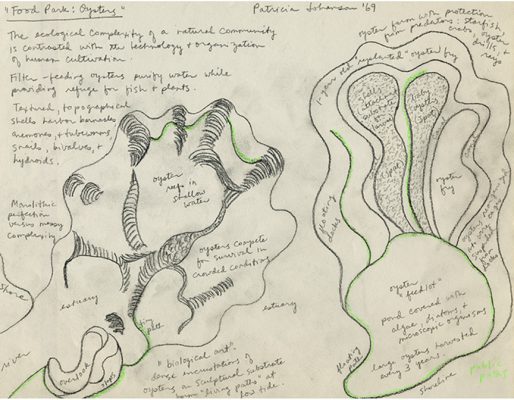 "Food Park: Oysters"
Patricia Johanson '69
The ecological complexity of a natural community
is contrasted with the technology & organization
of human cultivation.
Filter-feeding oysters purify water while
providing refuge for fish & plants.
Textured, topographical
shells harbor barnacles
anemones, & tubeworms,
snails, bivalves, &
hydroids.
Monolithic
perfection
versus messy
complexity
shore
river
estuary
overlook
steps
oyster
reefs in
shallow
water
oysters compete
for survival in
crowded conditions
estuary
"biological art"
dense incrustations of
oysters on sculptural substrate
form "living paths" at
low tide.
oyster farm with protection
from predators: starfish,
crabs, oyster
drills, &
rays
1-year old "replanted" oyster fry
shells
attached
substrate
for
larvae
(spat)
baby
oysters
(spat)
oyster
fry
floating
docks
oyster
"feedlot"
pond covered with
algae, diatoms, &
microscopic organisms
large oysters harvested
every 3 years.
floating
path
shoreline
public
paths